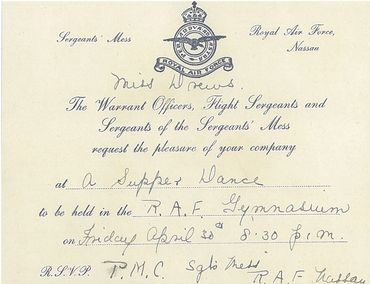 Sergeants' Mess
Royal Air Force,
Nassau
PER ARDUA AD ASTRA
ROYAL AIR FORCE
Miss Drews.
The Warrant Officers, Flight Sergeants and
Sergeants of the Sergeants' Mess
request the pleasure of your company
at A Supper Dance
to be held in the R.A.F. Gymnasium
on Friday April 30th 8.30 p.m.
R.S.V.P. P.M.C. Sgts Mess
R.A.F Nassau